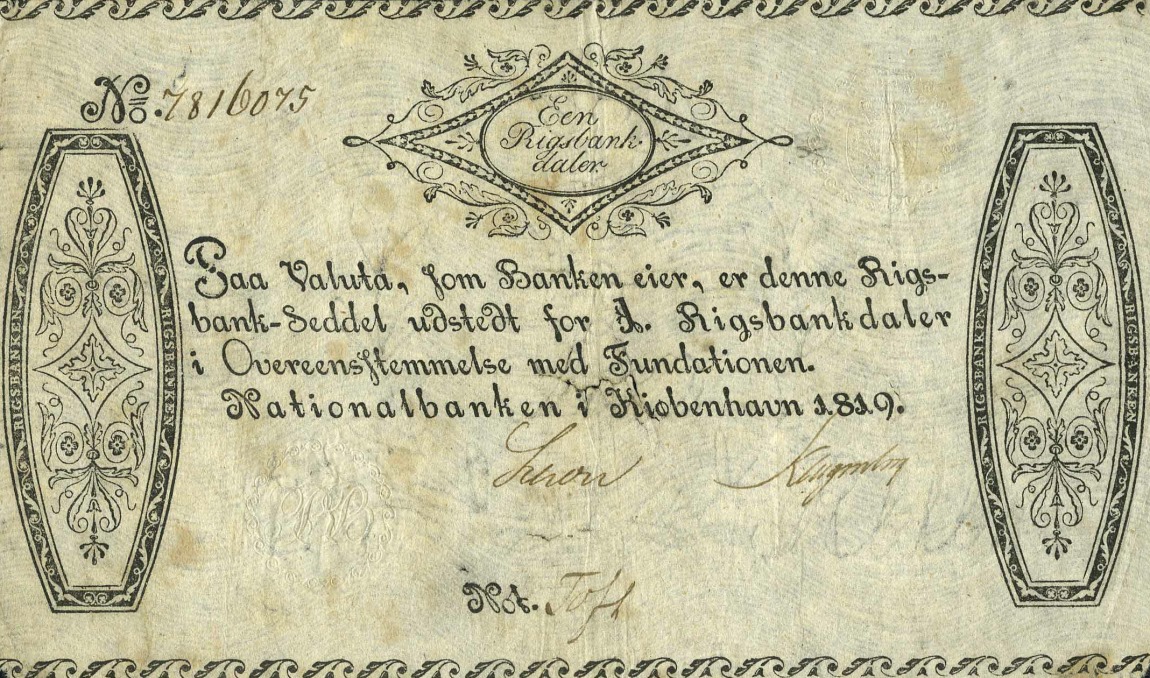 No. 7816075
Een
Rigsbank-
daler.
Paa Valuta, som Banken eier, er denne Rigs-
bank-Seddel udstedt for 1. Rigsbankdaler
i Overeensstemmelse med Fundationen.
Nationalbanken i Kiøbenhavn 1819.
Not. Toft
RIGSBANKEN
RIGSBANKEN
RIGSBANKEN
RIGSBANKEN